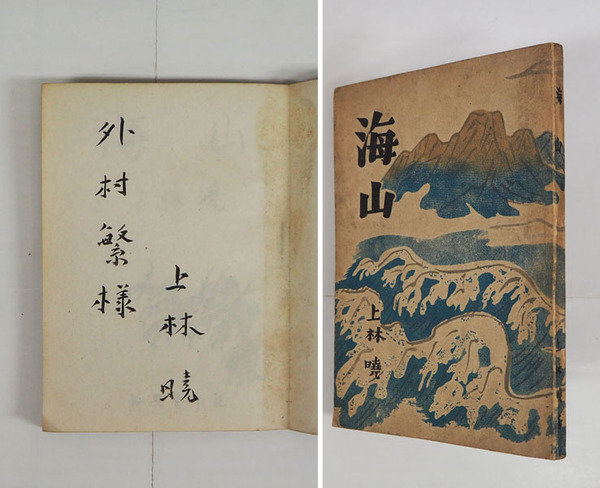 外村繁様
上林暁
海山
上林曉
海山